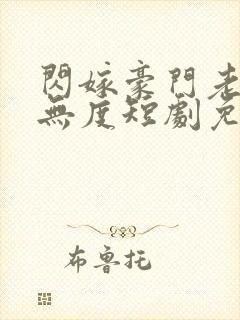 閃嫁豪門老
無度短劇免
布魯托